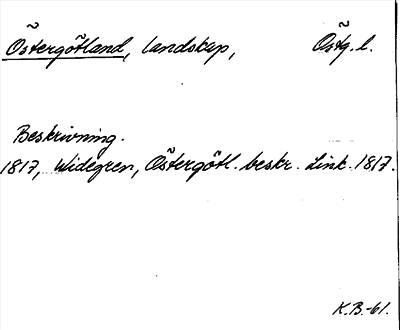 Östergötland, landskap, Östg. l.
Beskrivning.
1817, Widegren, Östergötl. beskr. Link. 1817.
K.B.-61.